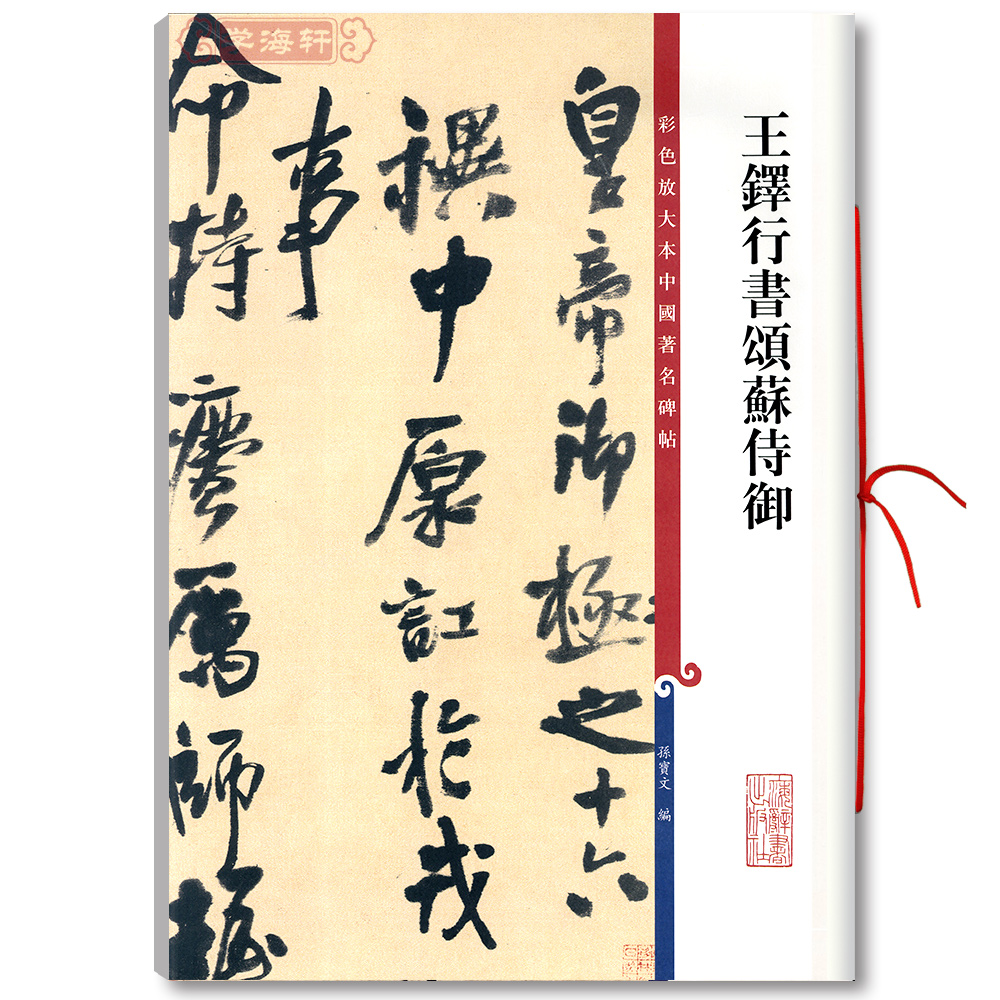 学海轩
王鐸行書頌蘇侍御
彩色放大本中國著名碑帖
孫寶文 編
皇帝御極之十六
禩中原訌於戎
事
命持 厲師